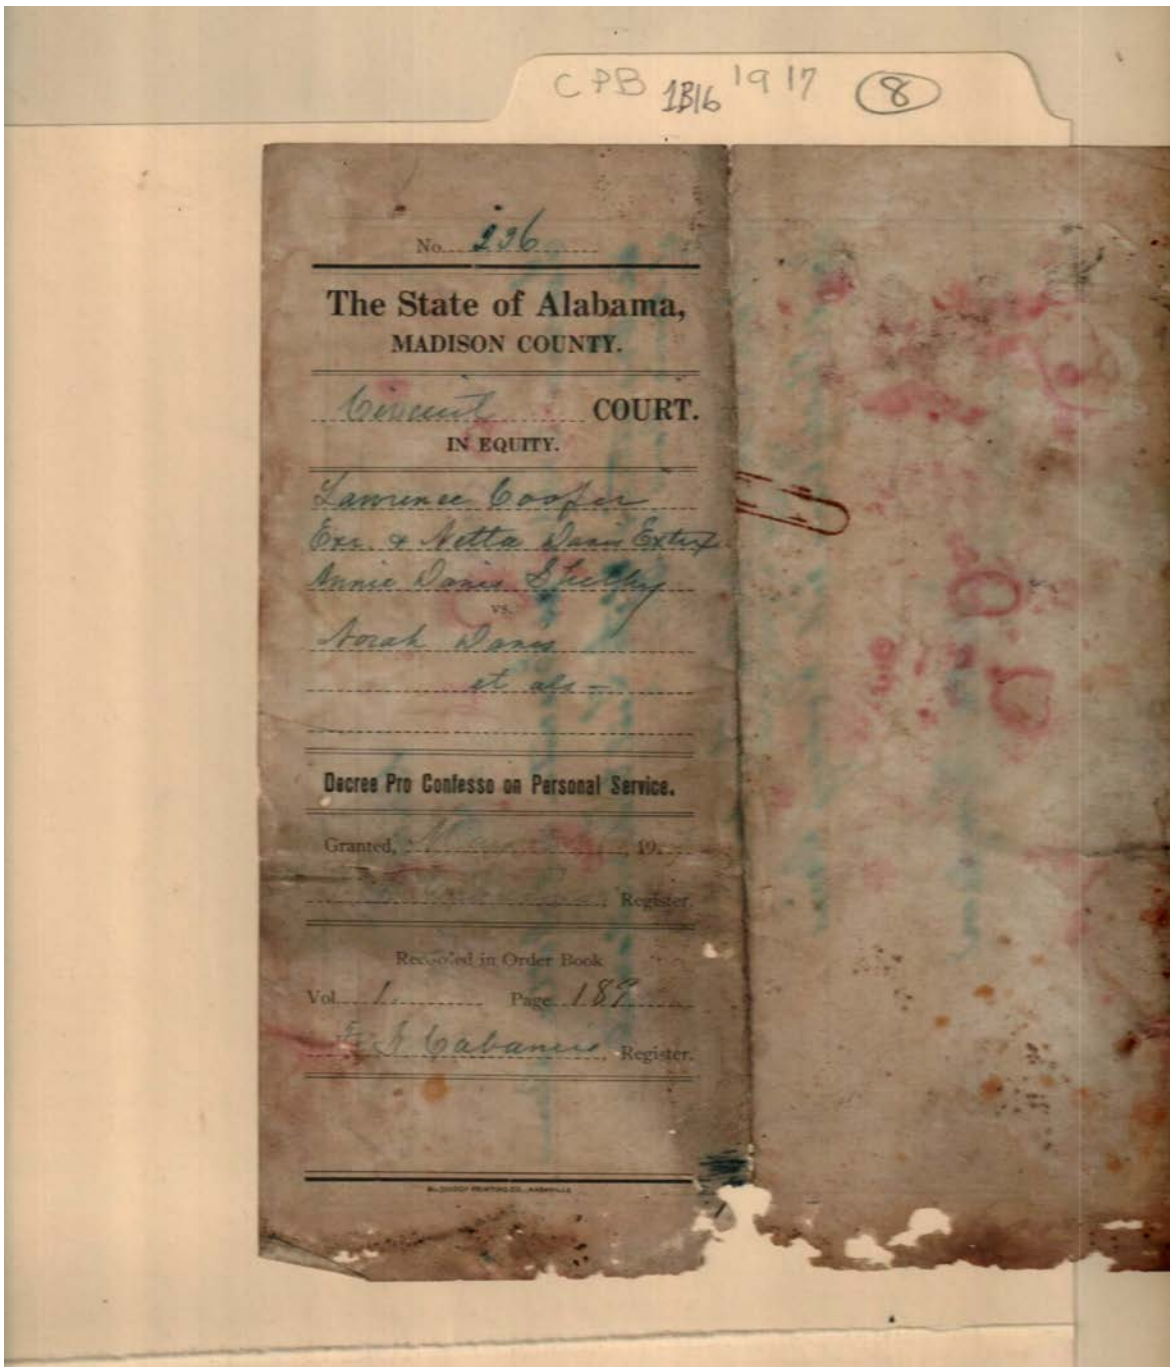 CPB 1B16 1917 8
No. 236
The State of Alabama,
MADISON COUNTY.
Circuit COURT.
IN EQUITY.
Lawrence Cooper
Exr. & Netta Davis Extrx
Annie Davis Shelby
vs.
Norah Davis
et als -
Decree Pro Confesso on Personal Service.
Granted, 19
Register.
Recorded in Order Book
Vol. 1. Page 187
Cabaniss, Register.